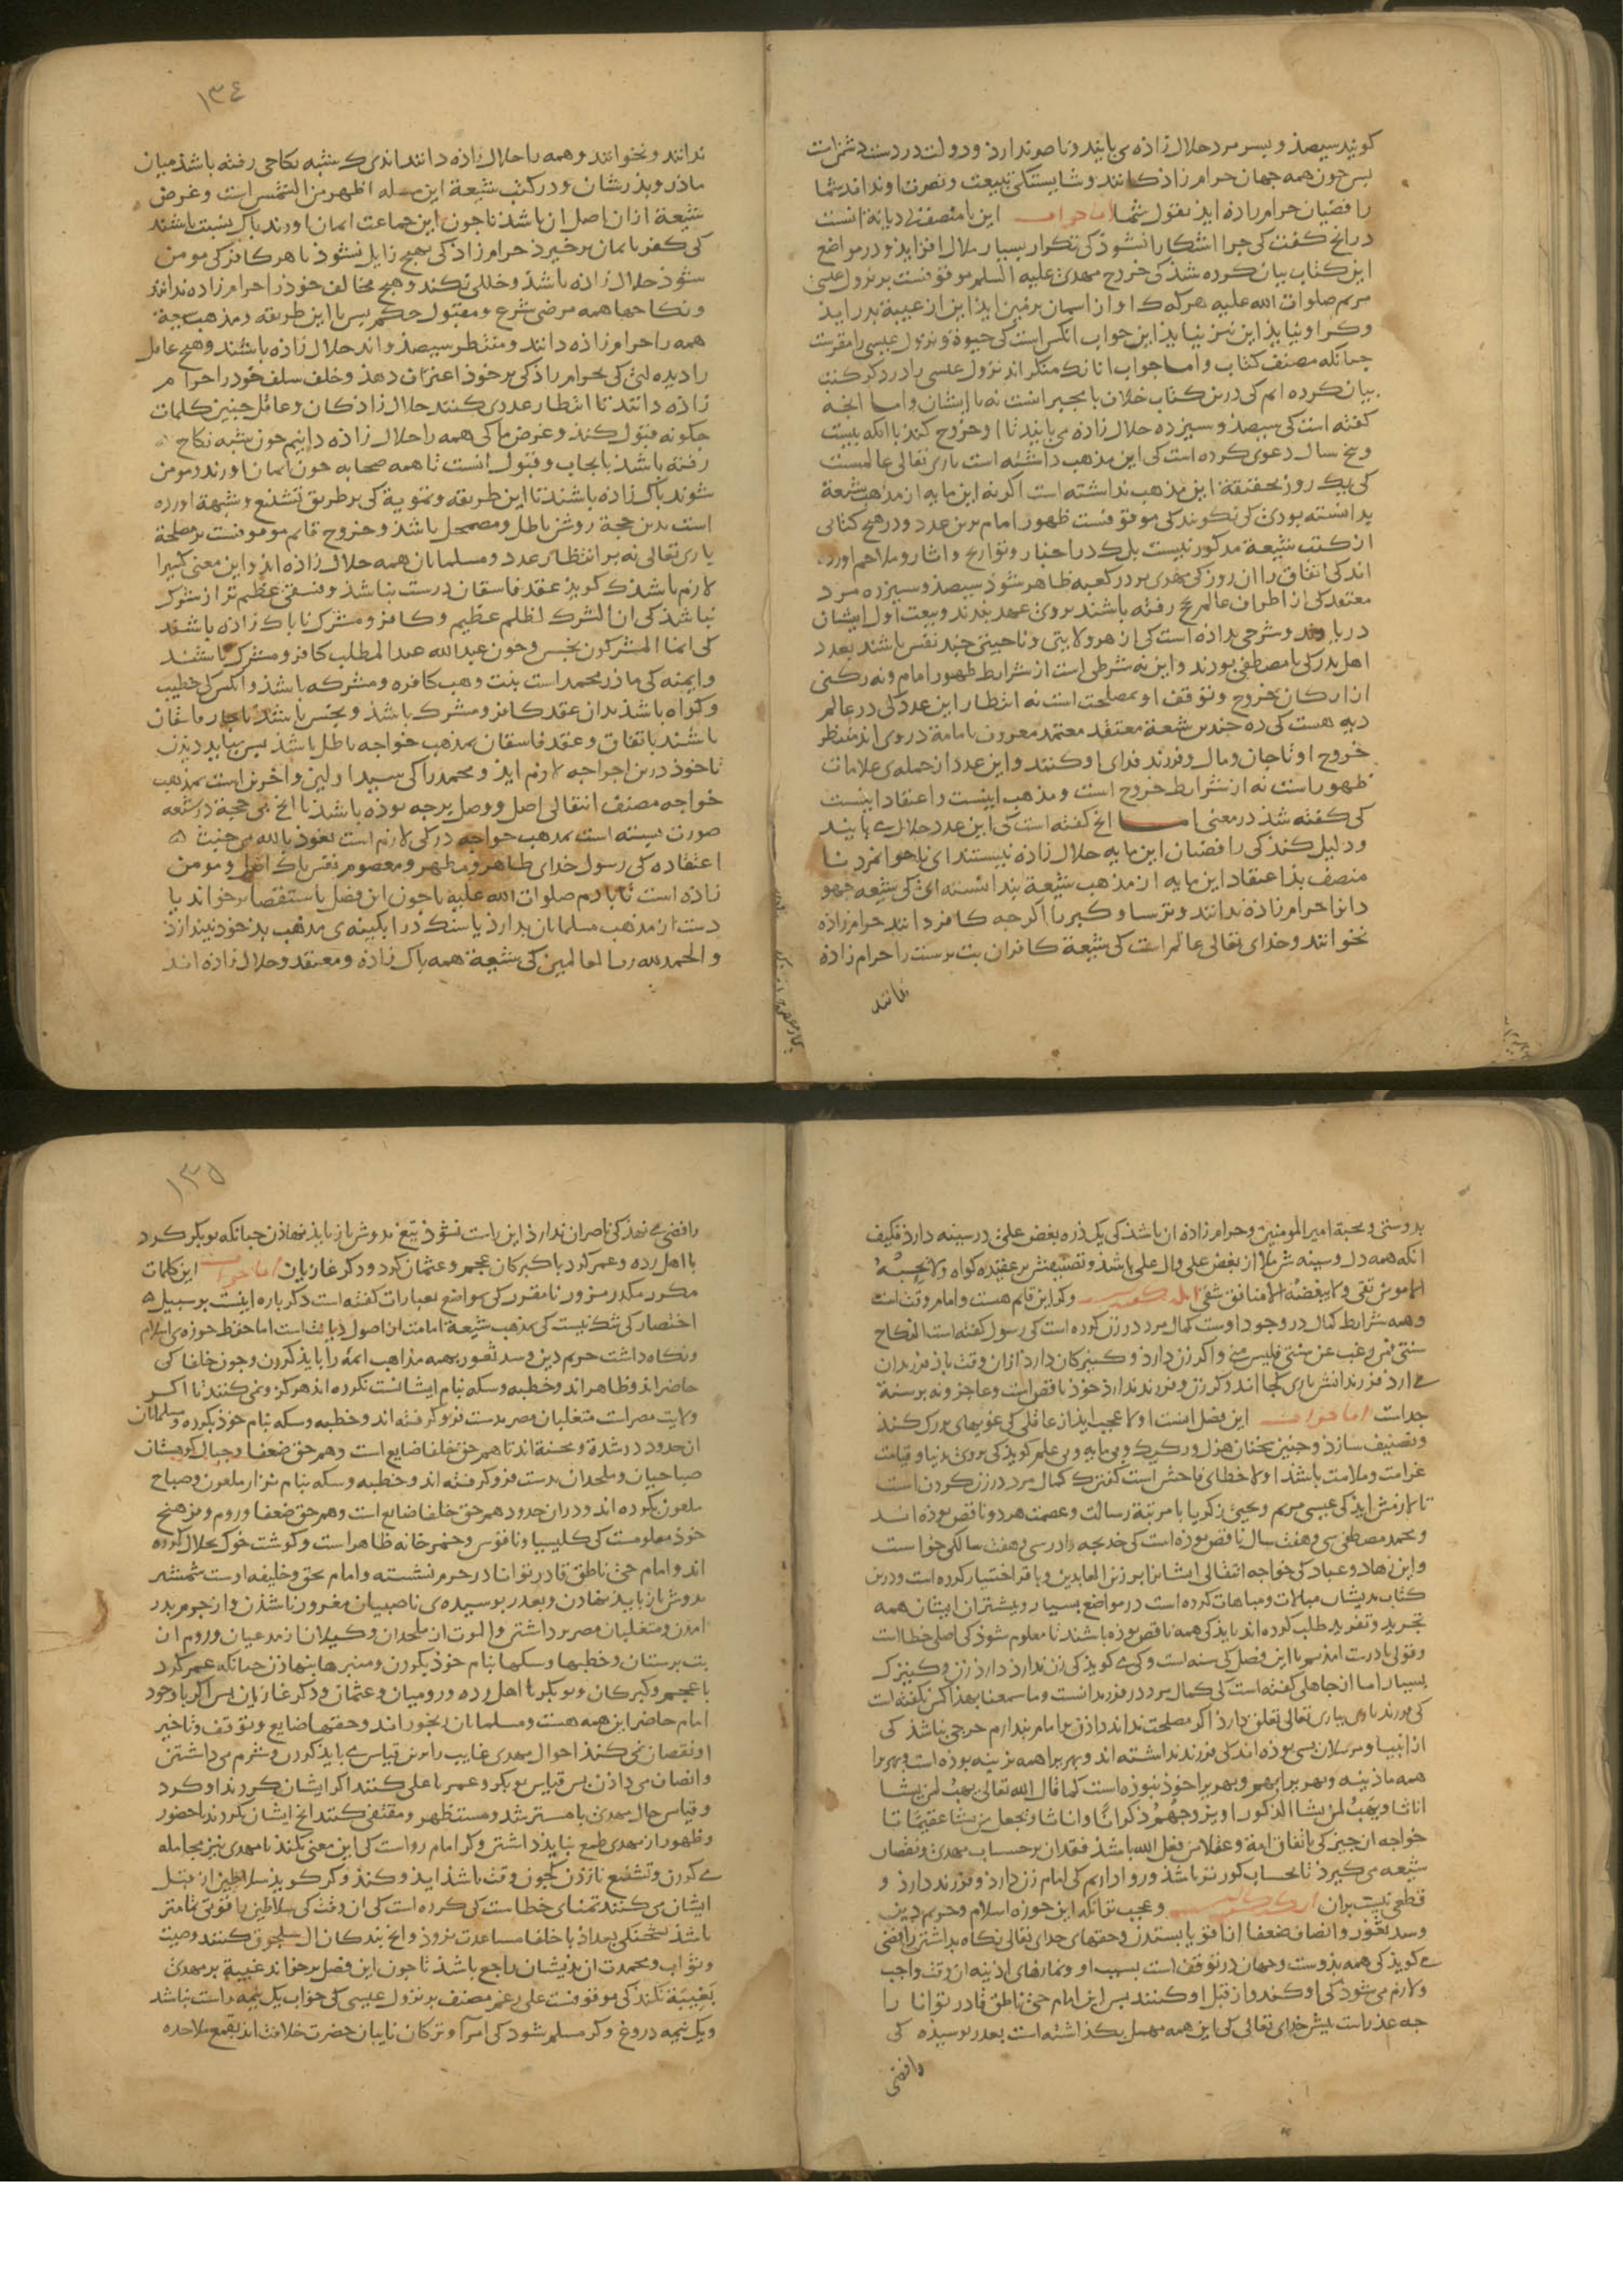 کویند سیصد و بیسر مرد حلال زاذه می بایند و ناصر ندارد و دولت در دست دشمنانست
بس جون همه جهان حرام زاذکانند و شایستکی تبیعت و نصرت او ندانند شما
رافضیان حرام زاده اید بقول شما اما جواب این با منصف بی دیانة انست
در انج کفت کی جرا اشکارا نشوذ کی تکرار بسیار ملال افزاید و در مواضع
این کتاب بیان کرده شد کی خروج مهدی علیه السلم موقوفست بر نزول عیسی
مریم صلوات الله علیه هر که کا او از اسمان بزمین اید این از غیبة بدر اید
و کر او نیاید این نیز نیاید این جواب انکس است کی حیوة و نزول عیسی را مقرست
جنانکه مصنف کتاب و اما جواب انانک منکر اند نزول عیسی را در ذکر کتب
بیان کرده ایم کی درین کتاب خلاف با مجبر انست نه با ایشان و اما انجه
کفته است کی سیصد و سیزده حلال زاده می بایند تا او خروج کند با انکه بیست
و پنج سال دعوی کرده است کی این مذهب داشته است باری تعالی عالمست
کی یک روز بحقیقة این مذهب نداشته است اکر نه این مایه از مذهب شیعة
بدانسته بودی کی نکویند کی موقوفست ظهور امام برین عدد و در هیچ کتابی
از کتب شیعة مذکور نیست بلک در اخبار و تواریخ و اثار و ملاحم اورده
اند کی اتفاق را ان روز کی مهدی بر در کعبه ظاهر شوذ سیصد و سیزده مرد
معتقد کی از اطراف عالم بحج رفته باشند بروی عهد بندند و بیعت اول ایشان
دریابند و شرحی بداذه است کی از هر ولایتی و ناحیتی جند نفس باشند بعدد
اهل بدر کی با مصطفی بودند و این نه شرطی است از شرایط ظهور امام و نه رکنی
از ارکان خروج و توقف او بمصلحت است نه انتظار این عدد کی در عالم
دیه هست کی ده جندین شیعة معتقد معتمد معروف بامامة در وی اند منتظر
خروج او تا جان و مال و فرزند فدای او کنند و این عدد از جمله ی علامات
ظهور است نه از شرایط خروج است و مذهب اینست و اعتقاد اینست
کی کفته شد در معنی اما انج کفته است کی این عدد حلالزاده بایند
و دلیل کند کی رافضیان این مایه حلال زاده نیستند ای ناجوانمرد نا
منصف بذ اعتقاد این مایه از مذهب شیعة بندانسته ای کی شیعه جهو
دانرا حرام زاذه ندانند و ترسا و کبر را اکر جه کافر دانند حرام زاده
نخوانند و خدای تعالی عالم است کی شیعة کافران بت پرست را حرام زاذه
ندانند
١٣٤
ندانند و نخوانند و همه را حلال زاذه دانند اندی ک بشبه نکاحی رفته باشذ میان
ماذر و بذرشان و در کتب شیعة این مسله اظهر من الشمس است و غرض
شیعة ازان اصل ان باشذ تا جون این جماعت ایمان اورند پاک نسبت باشند
کی کفر بایمان برخیزد حرام زاذکی بهیچ زایل نشوذ تا هر کافر کی مومن
شوذ حلال زاذه باشذ و خللی نکند و هیچ مخالف خوذ را حرام زاده ندانند
و نکاحها همه مرضی شرع و مقبول حکم پس با این طریقه و مذهب جة
همه را حرام زاذه دانند و منتظر سیصد و اند حلال زاذه باشند و هیچ عاقل
را دیده ای کی بحرام زاذکی بر خوذ اعتراف دهذ و خلف سلف خوذ را حرام
زاذه دانند تا انتظار عددی کنند حلال زاذکان و عاقل جنین کلمات
جکونه قبول کند و غرض ما کی همه را حلال زاذه دانیم جون بشبه نکاح
رفته باشذ بایجاب و قبول انست تا همه صحابه جون ایمان اورند و مومن
شوند پاک زاذه باشند تا این طریقه و تمویة کی بر طریق تشنیع و شبهة اورده
است بدین حجة روشن باطل و مضمحل باشذ و خروج قایم موقوفست بر مصلحة
باری تعالی نه بر انتظار عدد و مسلمانان همه حلال زاذه اند و این معنی کبیرا
لازم باشذ ک کویذ عقد فاسقان درست نباشذ و فسقی عظیم تر از شرک
نباشذ کی ان الشرک لظلم عظیم و کافر و مشرک ناپاک زاذه باشند
کی انما المشرکون نجس و جون عبدالله عبدالمطلب کافر و مشرک باشند
و ایمنه کی ماذر محمد است بنت وهب کافره و مشرکه باشذ و انکس کی خطیب
و کواه باشذ بدان عقد کافر و مشرک باشذ و نجس باشذ باجبار فاسقان
باشند باتفاق و عقد فاسقان بمذهب خواجه باطل باشذ پس بیاید دیدن
تا خوذ درین اجرا جه لازم اید و محمد را کی سید اولین و اخرین است بمذهب
خواجه مصنف انتقالی اصل و وصل برجه بوده باشذ تا انج بی حجة در شیعه
صورت بسته است بمذهب خواجه در کی لازم است نعوذ بالله من خبث
اعتقاده کی رسول خدای طاهر و مطهر و معصوم نفس پاک اصل و مومن
زاذه است تا بادم صلوات الله علیه تا جون این فصل باستقصا برخواند یا
دست از مذهب مسلمانان بدارد یا سنک در ابکینه ی مذهب بذ خوذ نیندازد
و الحمد لله رب العالمین کی شیعة همه پاک زاذه و معتقد و حلال زاده اند
بدوستی و محبة امیر المومنین و حرام زاده ان باشذ کی یک ذره بغض علی در سینه دارد فکیف
انکه همه دل و سینه ش ملا از بغض علی و ال علی باشذ و تصنیفش بر عقیده کواه و لا یحبه
الا مومن تقی و لا یبغضه الا منافق شقی انکه کفته است و کر این قایم هست و امام وقت است
و همه شرایط کمال در وجود اوست کمال مرد در زن کرده است کی رسول کفته است النکاح
سنتی فمن رغب عن سنتی فلیس منی و اکر زن دارد و کنیزکان دارد ازان وقت باز فرزندان
می ارد فرزندانش باری کجا اند و کر زن و فرزند ندارد خوذ ناقص است و عاجز و نه بر سنة
جد است اما جواب این فصل انست اولا عجب اید از عاقلی کی غوبهای بزرک کند
و تصنیف سازد و جنین سخنان هزل و رکیک و بی مایه و بی علم کوید کی بروی بدنیا و قیامت
غرامت و ملامت باشذ اولا خطای فاحش است کفتن ک کمال مرد در زن کردن است
تا لازمش اید کی عیسی مریم و یحیی زکریا با مرتبة رسالت و عصمت هر دو ناقص بوذه اند
و محمد مصطفی سی و هفت سال ناقص بوذه است کی خدیجه را در سی و هفت سالکی خواست
و این زهاد و عباد کی خواجه انتقالی ایشانرا بر زین العابدین و باقر اختیار کرده است و درین
کتاب بدیشان مبالات و مباهات کرده است در مواضع بسیار و بیشتر ان ایشان همه
تجرید و تفرید طلب کرده اند باید کی همه ناقص بوذه باشند تا معلوم شوذ کی اصلی خطا است
و قولی نادرست امذیم با این فصل کی سنه است و کی می کویذ کی زن ندارد دارد زن و کنیزک
بسیار اما از جاهلی کفته است کی کمال مرد در فرزند انست و ما سمعنا بهذا کس نکفته است
کی فرزند دادن بباری تعالی تعلق دارد اکر مصلحت نداند دادن ما امام بندارم حرجی نباشذ کی
از انبیا و مرسلان بسی بوذه اند کی فرزند نداشته اند و بهری را همه نرینه بوذه است و بهری را
همه ماذینه و بهری را بهم و بهری را خوذ نبوذه است کما قال الله تعالی یهب لمن یشا
اناثا و یهب لمن یشا الذکور او یزوجهم ذکرانا و اناثا و یجعل من یشا عقیما تا
خواجه ان جیز کی باتفاق امة و عقلا من فعل الله باشذ فقدان بر حساب مهدی و نقصان
شیعه می کیرد تا بحساب کورتر باشذ و روا داریم کی امام زن دارد و فرزند دارد و
قطعی نیست بران و عجب تر انکه این حوزه اسلام و حریم دین
و سد ثغور و انصاف ضعفا از اقویا بستدن و حقهای خدای تعالی نکاه بداشتن رافضی
می کوید کی همه بدوست و جهان در توقف است بسبب او و نمازهای اذینه ان وقت واجب
و لازم می شوذ کی او کند و از قبل او کنند پس این امام حی ناطق قادر توانا را
جه عذر است پیش خدای تعالی کی این همه مهمل بکذاشته است بعذر پوسیده کی
رافضی
١٣٥
رافضی می نهد کی ناصران ندارد این راست نشوذ تیغ بدوش باز باید نهاذن جنانکه بوبکر کرد
با اهل رده و عمر کرد با کبرکان عجم و عثمان کرد و دکر غازیان اما جواب این کلمات
مکرر مکدر مزور نامقرر کی بمواضع بعبارات کفته است دکر باره اینست بر سبیل
اختصار کی شک نیست کی بمذهب شیعة امامت از اصول دیانت است اما حفظ حوزه ی اسلام
و نکاه داشت حریم دین و سد ثغور بهمه مذاهب ایمه را باید کردن و جون خلفا کی
حاضر اند و ظاهر اند و خطبه و سکه بنام ایشانست نکرده اند هرکز و نمی کنند تا اکر
ولایت مصر است متغلبان مصر بدست فرو کرفته اند و خطبه و سکه بنام خوذ بکرده و مسلمانان
ان حدود در شدة و محنة اند تا هم حق خلفا ضایع است و هم حق ضعفا و جبال کوهستان
صباحیان و ملحدان بدست فرو کرفته اند و خطبه و سکه بنام نزار ملعون و صباح
ملعون بکرده اند و دران حدود هم حق خلفا ضایع است و هم حق ضعفا و روم و
خوذ معلومست کی کلیسیا و ناقوس و خمرخانه ظاهر است و کوشت خوک بحلال کرده
اند و امام حی ناطق قادر توانا در حرم نشسته و امام بحق و خلیفه اوست شمشیر
بدوش باز باید نهادن و بعذر پوسیده ی ناصبیان مغرور ناشدن و از حرم بدر
امدن و متغلبان مصر برداشتن و الموت از ملحدان و کیلان از مدعیان و روم از
بت پرستان و خطبها و سکها بنام خوذ بکردن و منبرها بنهاذن جنانکه عمر کرد
با عجم و کبرکان و بوبکر با اهل رده و رومیان و عثمان و دکر غازیان پس اکر با وجود
امام حاضر این همه هست و مسلمانان رنجور اند و حقها ضایع و توقف و تاخیر
او نقصان نمی کند احوال مهدی غایب را برین قیاس می باید کردن و شرم می داشتن
و انصاف می داذن پس قیاس بوبکر و عمر با علی کنند اکر ایشان کردند او کرد
و قیاس حال مهدی با مسترشد و مستظهر و مقتفی کنند انج ایشان نکردند با حضور
و ظهور از مهدی طمع نباید داشتن و کر امام رواست کی این معنی نکند تا مهدی بنیز مجامله
می کردن و تشنیع نازدن کی جون وقت باشذ اید و کند و کر کویذ سلاطین از قبل
ایشان می کنند تمنای خطا ست کی کرده است کی ان وقت کی سلاطین را قوتی تمامتر
باشذ بتخنکی بغداذ با خلفا مساعدت نروذ و انج بندکان ال سلجوق کنند و صیت
و ثواب و محمدت ان بدیشان راجع باشذ تا جون این فصل برخواند غیبة بر مهدی
بغیبة نکند کی موقوفست علی رغم مصنف بر نزول عیسی کی جواب یک نیمه راست نباشد
و یک نیمه دروغ و کر مسلم شود کی امرا و ترکان نایبان حضرت خلافت اند بقمع ملاحده